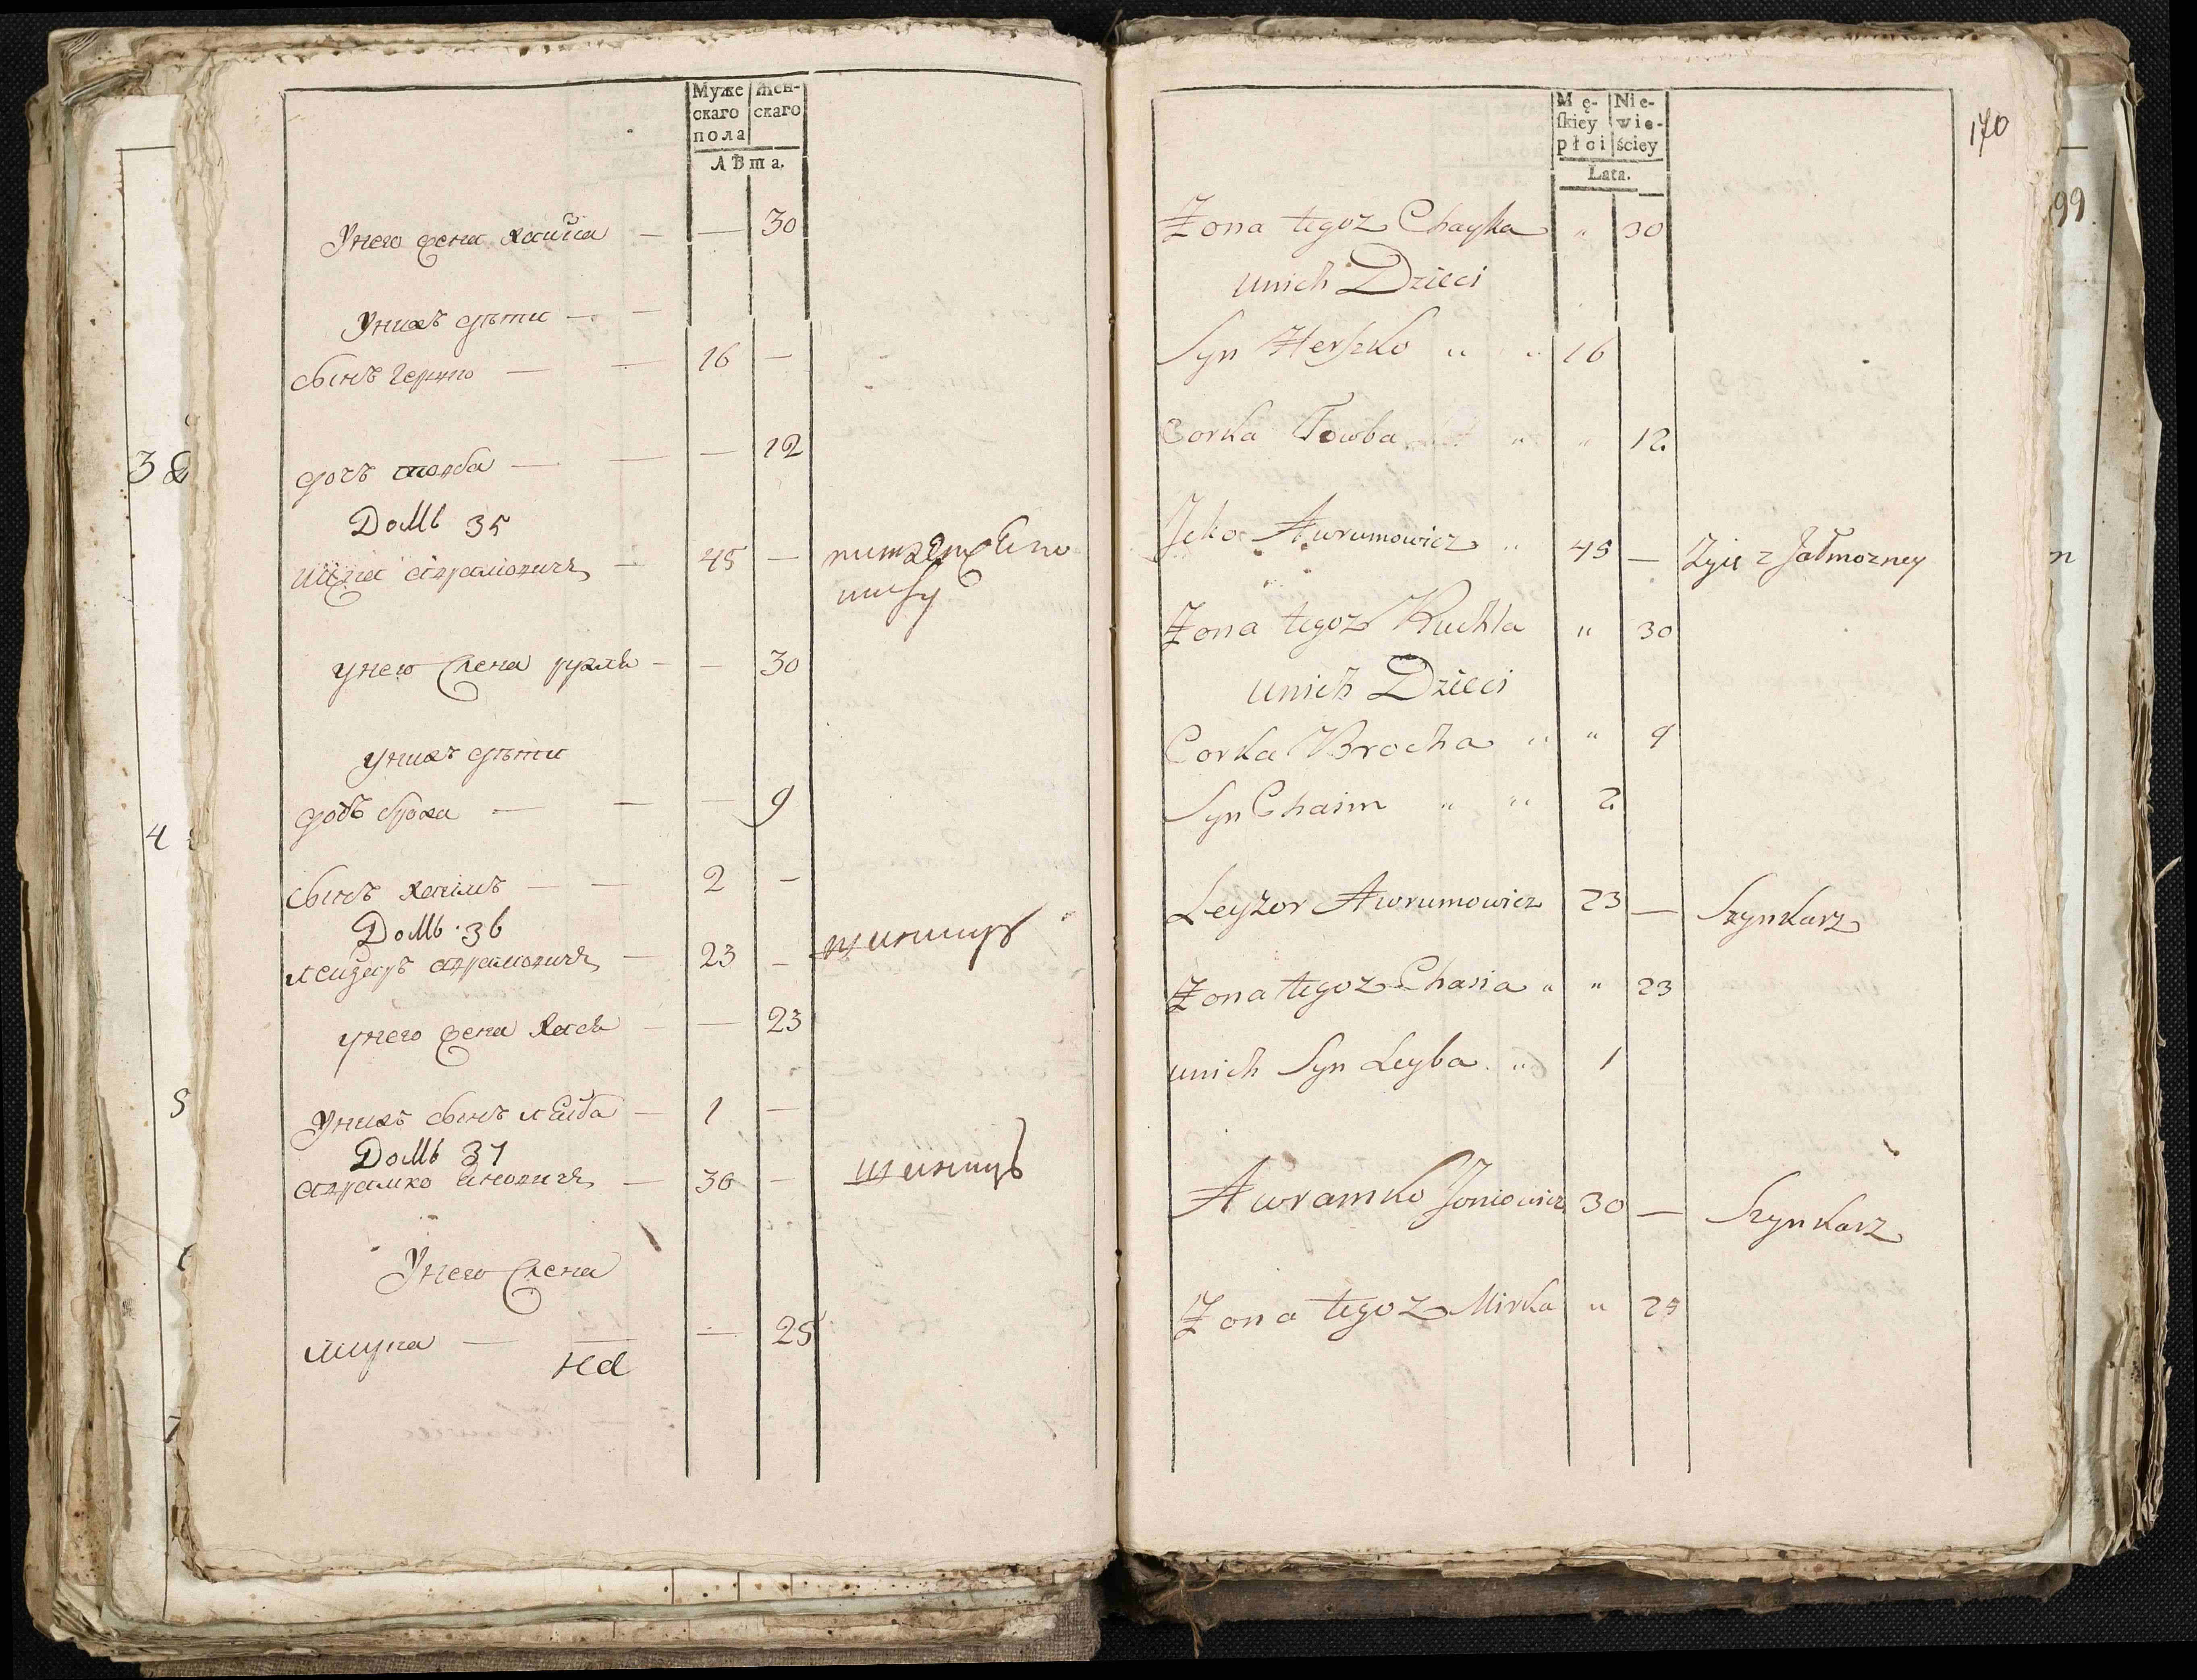 Муже скаго пола
Жен- скаго
Лѣта.
Унего жена хайка — — 30
Унихъ дѣти — —
сынъ Гершко — — 16 —
дочъ товба — — — 12
Домъ 35
ицка аврамовичъ — 45 —
унего жена рухля — — 30
унихъ дѣти
дочъ броха — — — 9
сынъ хаимъ — — 2 —
Домъ 36
лейзоръ аврамовичъ — 23 — шинкуръ
унего жена хася — — 23
Унихъ сынъ лейба — 1 —
Домъ 37
аврамко ионовичъ — 30 — шинкуръ
Унего жена
мирка — — 25
на
170
Mę- ſkiey płci
Nie- wie- ściey
Lata.
Zona tegoz Chayka " 30
unich Dzieci
Syn Herszko " " 16
Corka Towba " " 12
Icko Awrumowicz " 45 — Zyie z Jałmozney
Zona tegoz Ruchla " 30
unich Dzieci
Corka Brocha " " 9
Syn Chaim " " 2
Leyzor Awrumowicz 23 — Szynkarz
Zona tegoz Chasia " " 23
unich Syn Leyba " 1
Awramko Joniowicz 30 — Szynkarz
Zona tegoz Mirka " 25
99